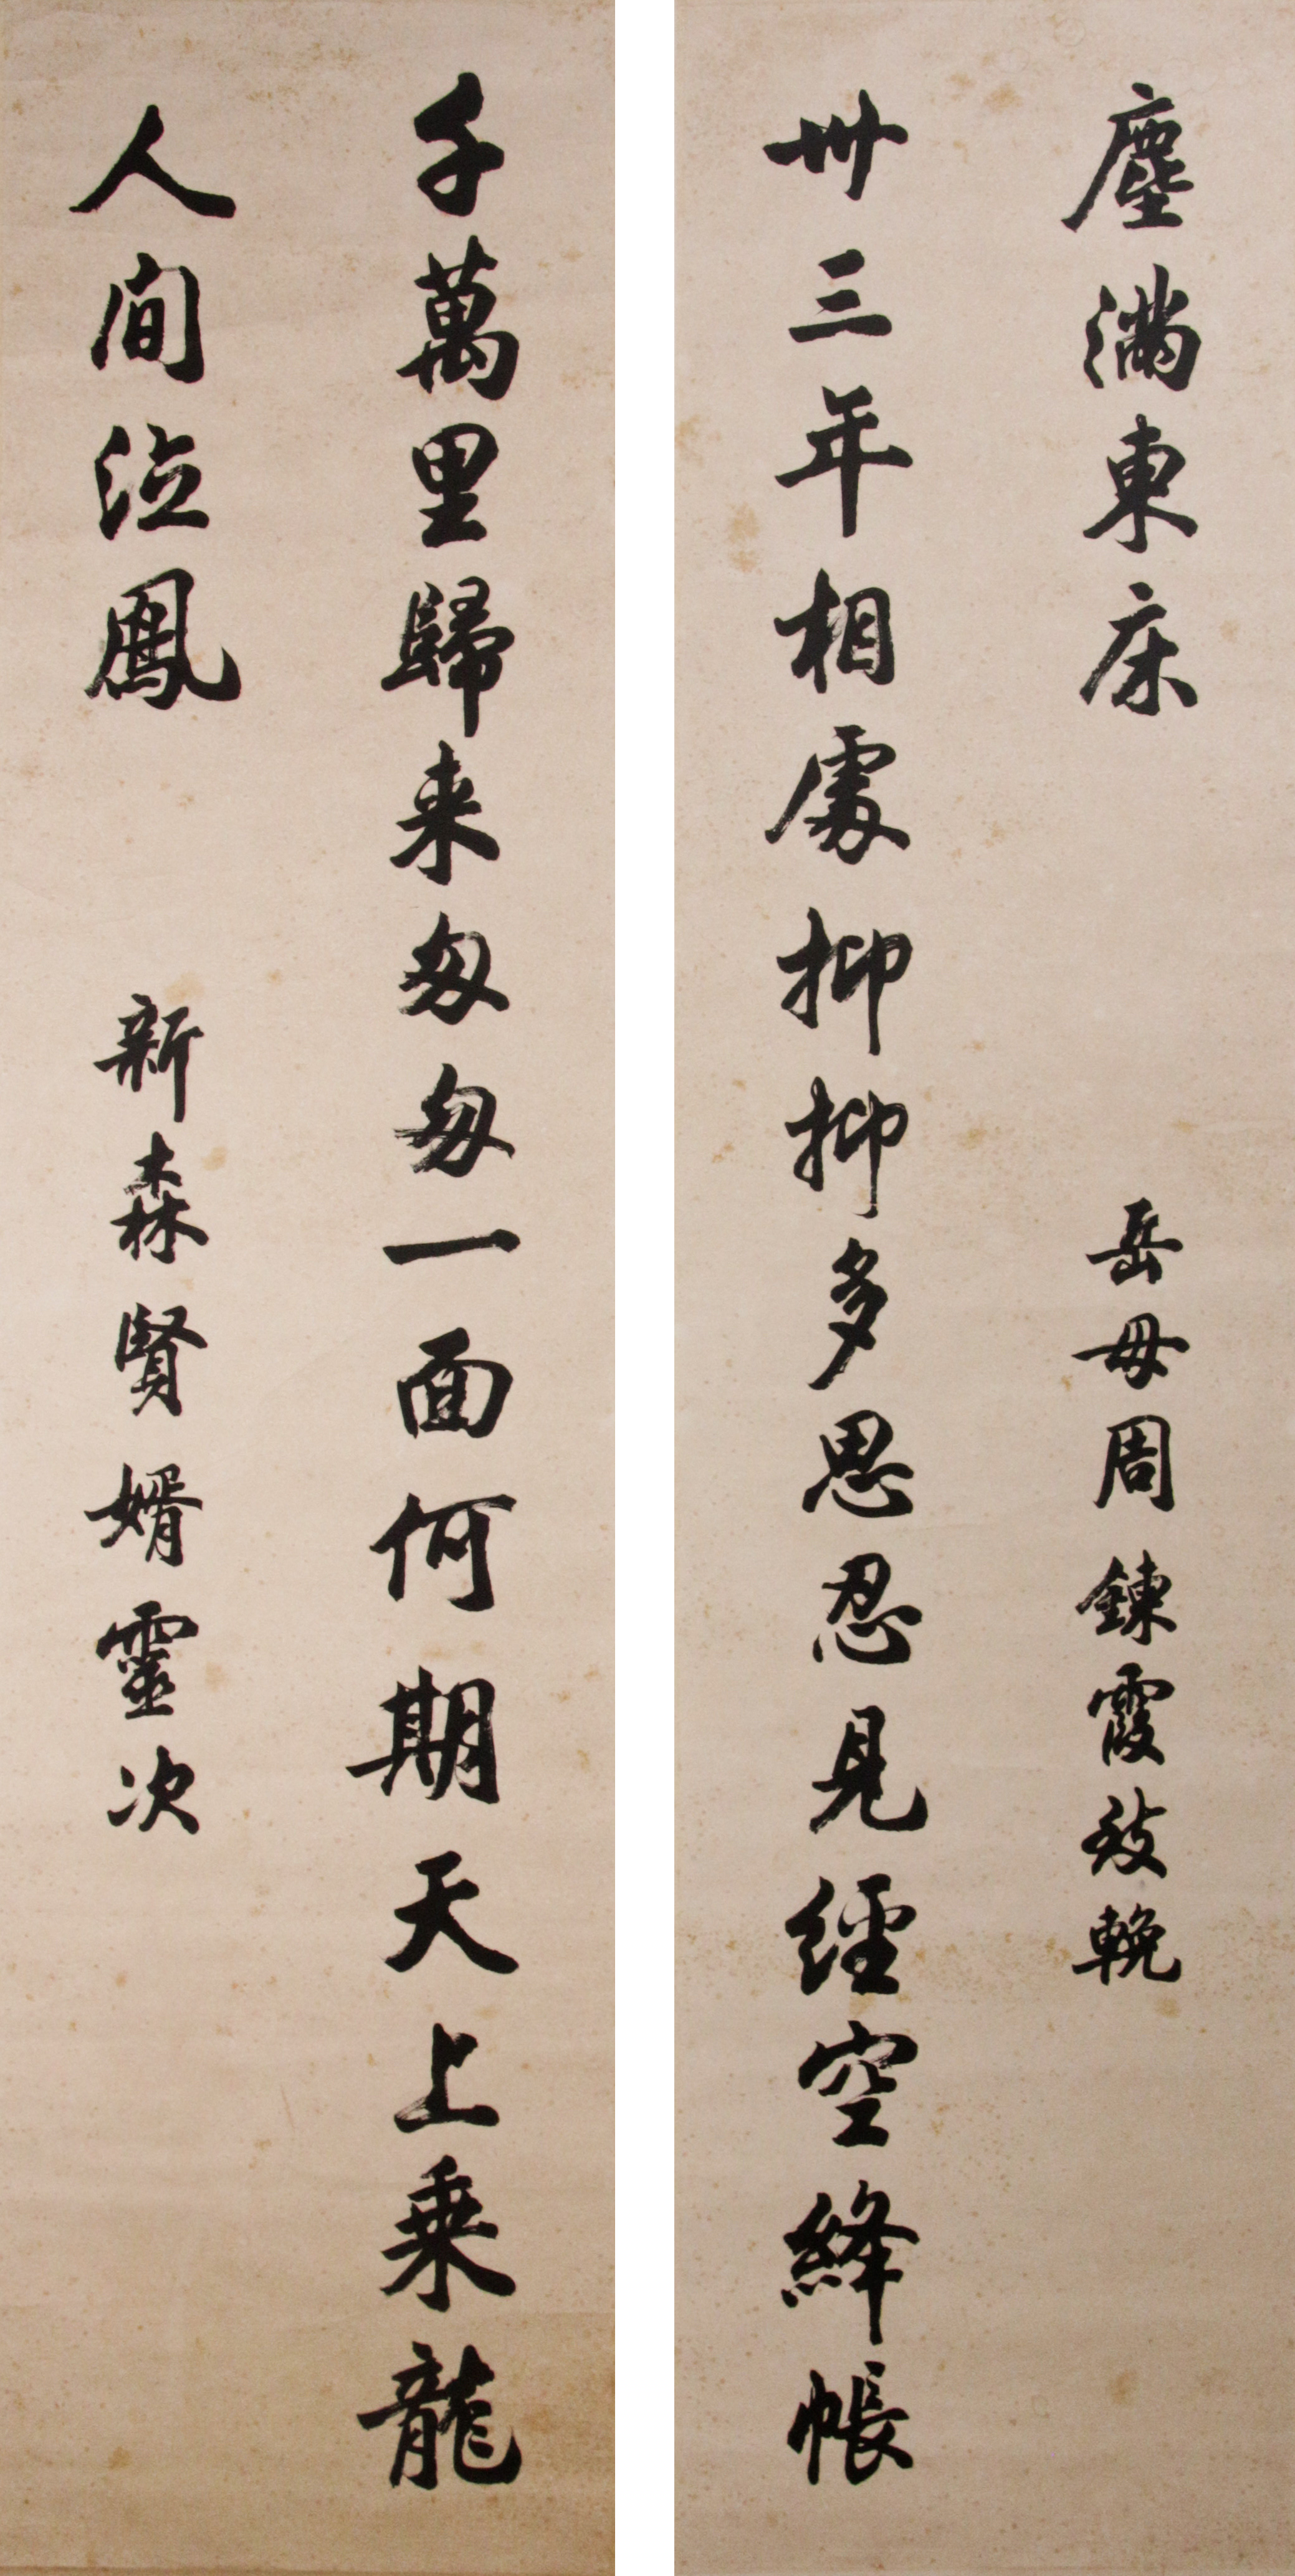 千萬里歸来匆匆一面何期天上乘龍
人間泣鳳
新森賢婿靈次
卅三年相處抑抑多思忍見經空絳帳
塵滿東床
岳母周鍊霞致輓